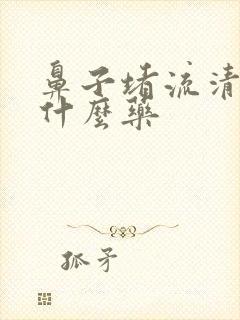 鼻子堵流清
什麼藥
孤矛